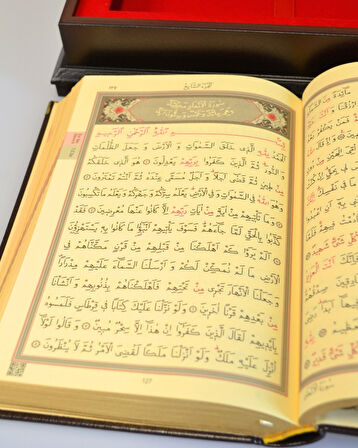 الجزء السابع
١٢٧
سورة الأنعام مكية
بسم الله الرحمن الرحيم
الحمد لله الذي خلق السموات و الأرض و جعل الظلمات
و النور ثم الذين كفروا بربهم يعدلون هو الذي خلقكم
من طين ثم قضى أجلا و أجل مسمى عنده ثم أنتم تمترون
وهو الله في السموات و في الأرض يعلم سركم وجهركم و يعلم ما تكسبون
و ما تأتيهم من آية من آيات ربهم إلا كانوا عنها معرضين فقد
كذبوا بالحق لما جاءهم فسوف يأتيهم أنباء ما كانوا به يستهزؤن
ألم يروا كم أهلكنا من قبلهم من قرن مكناهم في
الأرض ما لم نمكن لكم و أرسلنا السماء عليهم مدرارا
و جعلنا الأنهار تجري من تحتهم فأهلكناهم بذنوبهم و أنشأنا
من بعدهم قرنا آخرين ولو نزلنا عليك كتابا في قرطاس فلمسوه
بأيديهم لقال الذين كفروا إن هذا إلا سحر مبين و قالوا لولا
أنزل عليه ملك ولو أنزلنا ملكا لقضي الأمر ثم لا ينظرون
127